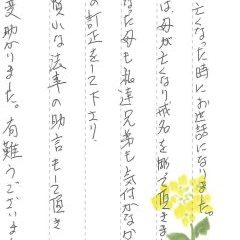 亡くなった時にお世話になりました。
は母が亡くなり戒名を彫って頂きま
った母も私達兄弟も気付かなか
の訂正をして下さり、
な法事の助言もして頂き
変助かりました。有難うございま